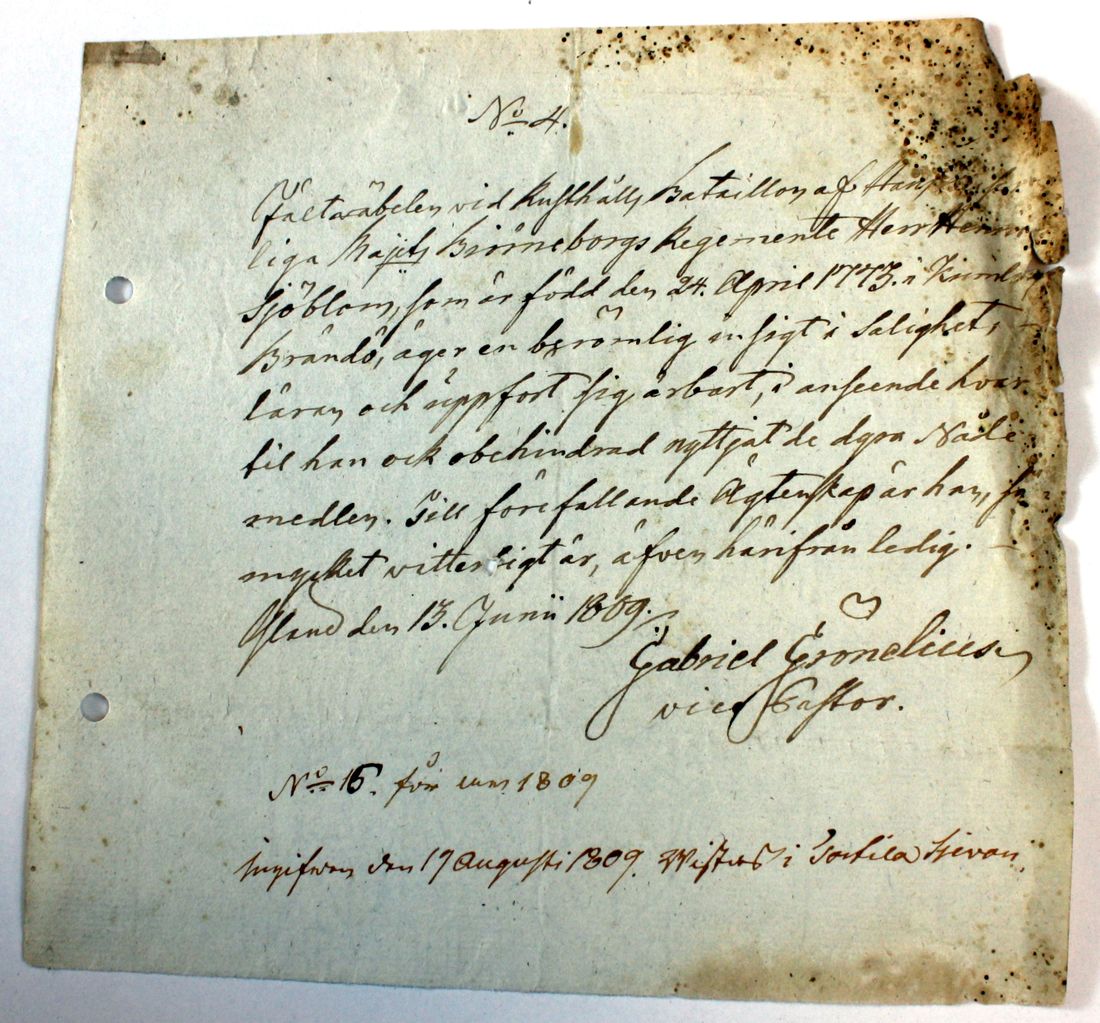 No 4.
Fältwäbelen vid Rusthålls Bataillon af
liga Majts Björneborgs Regemente Herr
Sjöblom, som är född den 24. April 1773. i
Brändö, äger en berömlig insigt i Salighets
läran och uppfört sig ärbart, i anseende hvar
til han ock obehindrad nyttjat de dyra Nåde
medlen. Till förefallande Ägtenskap är han, så
mycket witterligt är, äfven härifrån ledig. —
Åland den 13. Junii 1809.
Gabriel Grönelius
vice Pastor.
No 16. för 1809
Ingifwen den 19 Augusti 1809. Wistas i